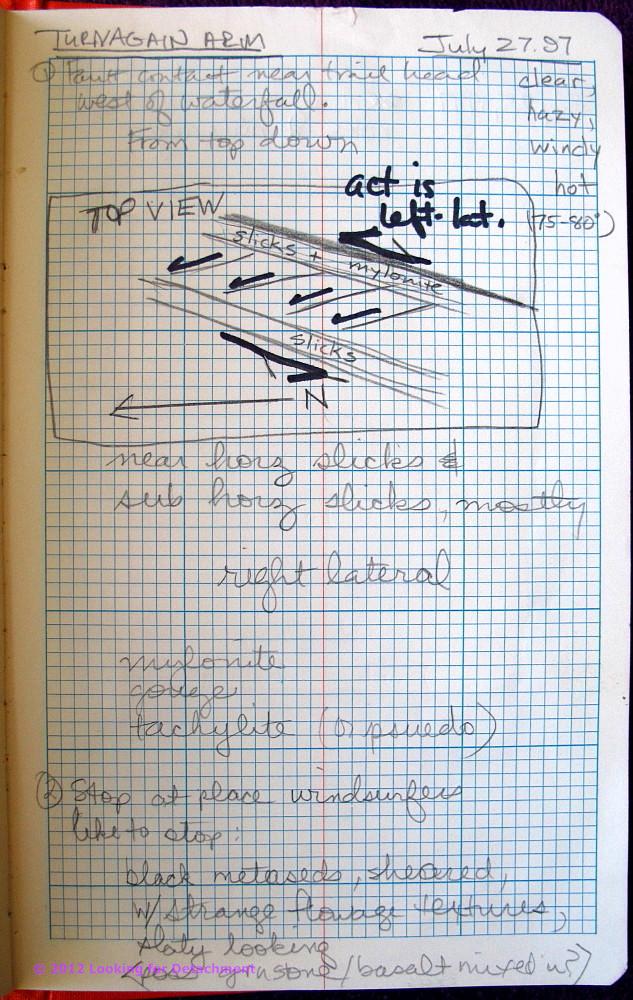 TURNAGAIN ARM July 27.97
① Fault contact near trail head clear,
west of waterfall. hazy,
From top down windy
hot
(75-80°)
TOP VIEW
act is
left-lat.
slicks + mylonite
slicks
N
near horz slicks &
sub horz slicks, mostly
right lateral
mylonite
gouge
tachylite (or psuedo)
② Stop at place windsurfers
like to stop:
black metaseds, sheared,
w/ strange flowage textures,
platy looking
greenstone/basalt mixed in?)
© 2012 Looking for Detachment